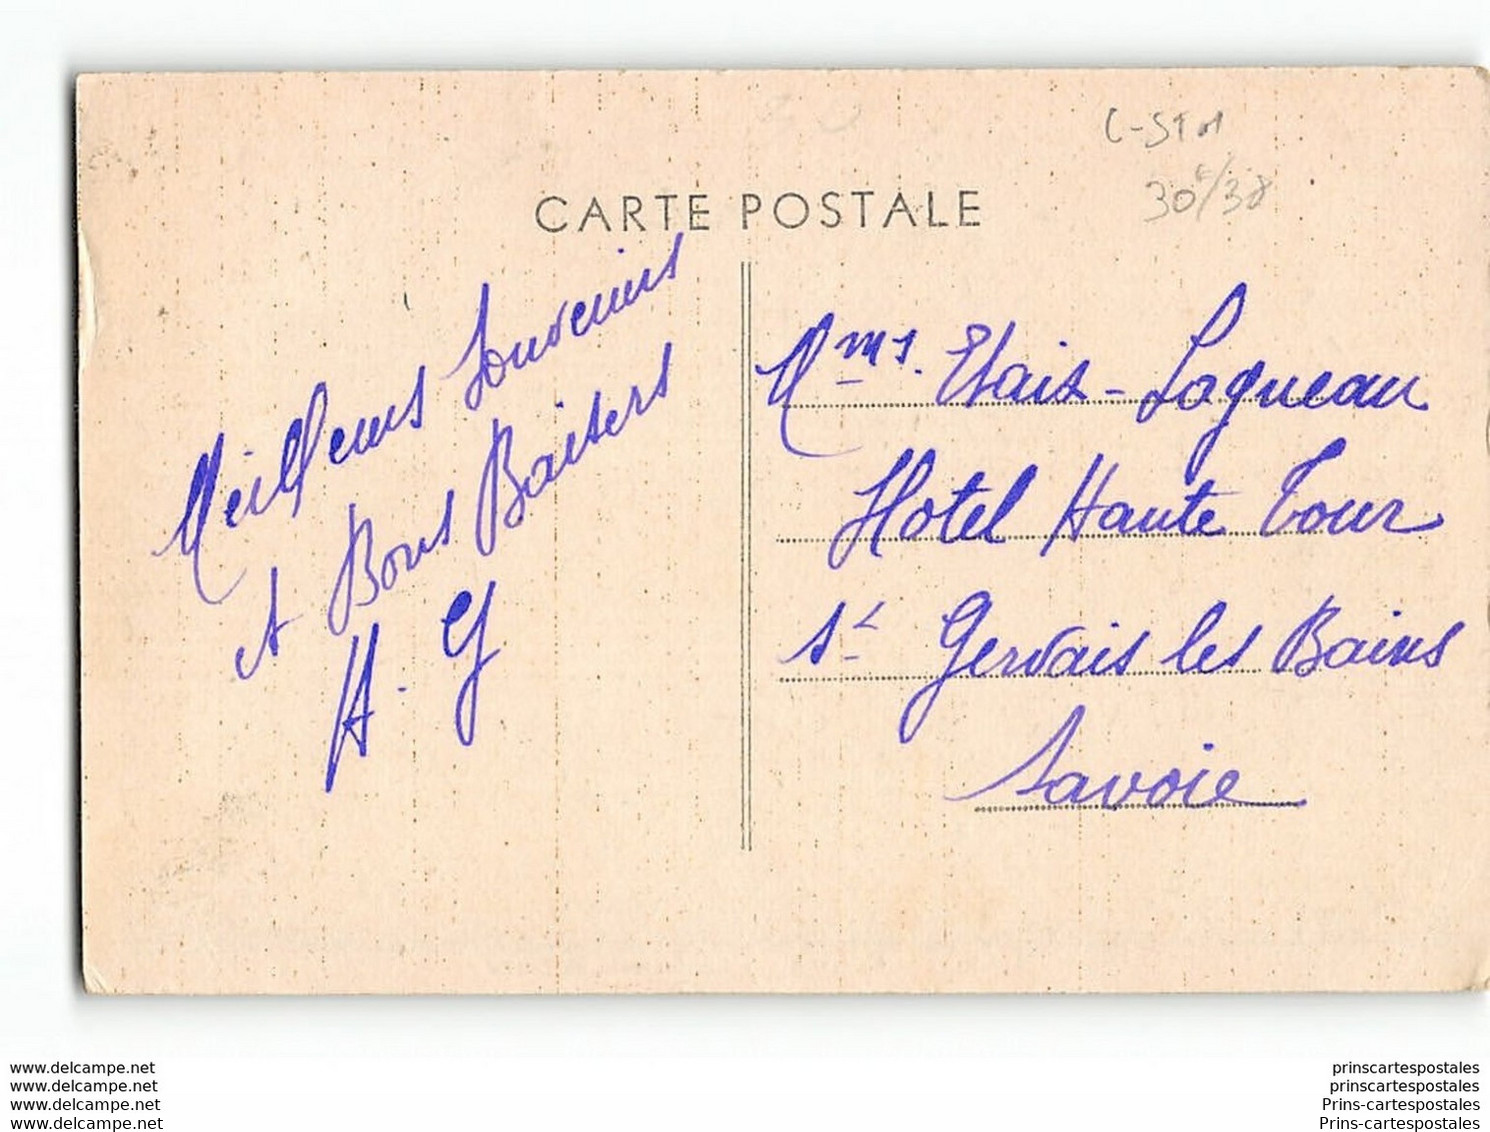 CARTE POSTALE
30c/38
Meilleurs Souvenirs
et Bons Baisers
H. G
Mms. Elaix-Laqueau
Hotel Haute Tour
St Gervais les Bains
Savoie
www.delcampe.net
www.delcampe.net
www.delcampe.net
www.delcampe.net
prinscartespostales
prinscartespostales
Prins-cartespostales
Prins-cartespostales